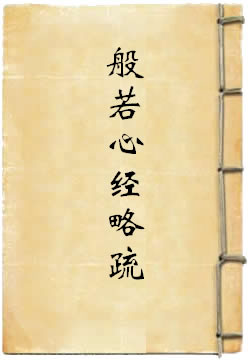 般若心经略疏